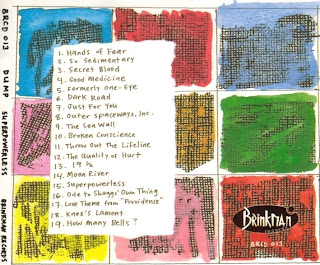 BRCD 013 DUMP SUPERPOWERLESS BRINKMAN RECORDS
1. Hands of Fear
2. So Sedimentary
3. Secret Blood
4. Good Medicine
5. Formerly one-Eye
6. Dark Road
7. Just For You
8. Outer Spaceways, Inc.
9. The Sea Wall
10. Broken Conscience
11. Throw Out the Lifeline
12. The Quality of Hurt
13. 19 ½
14. Moon River
15. Superpowerless
16. Ode to Shaggs' Own Thing
17. Love Theme from "Providence"
18. Knox's Lament
19. How many Bells?
BRINKMAN
BRCD 013